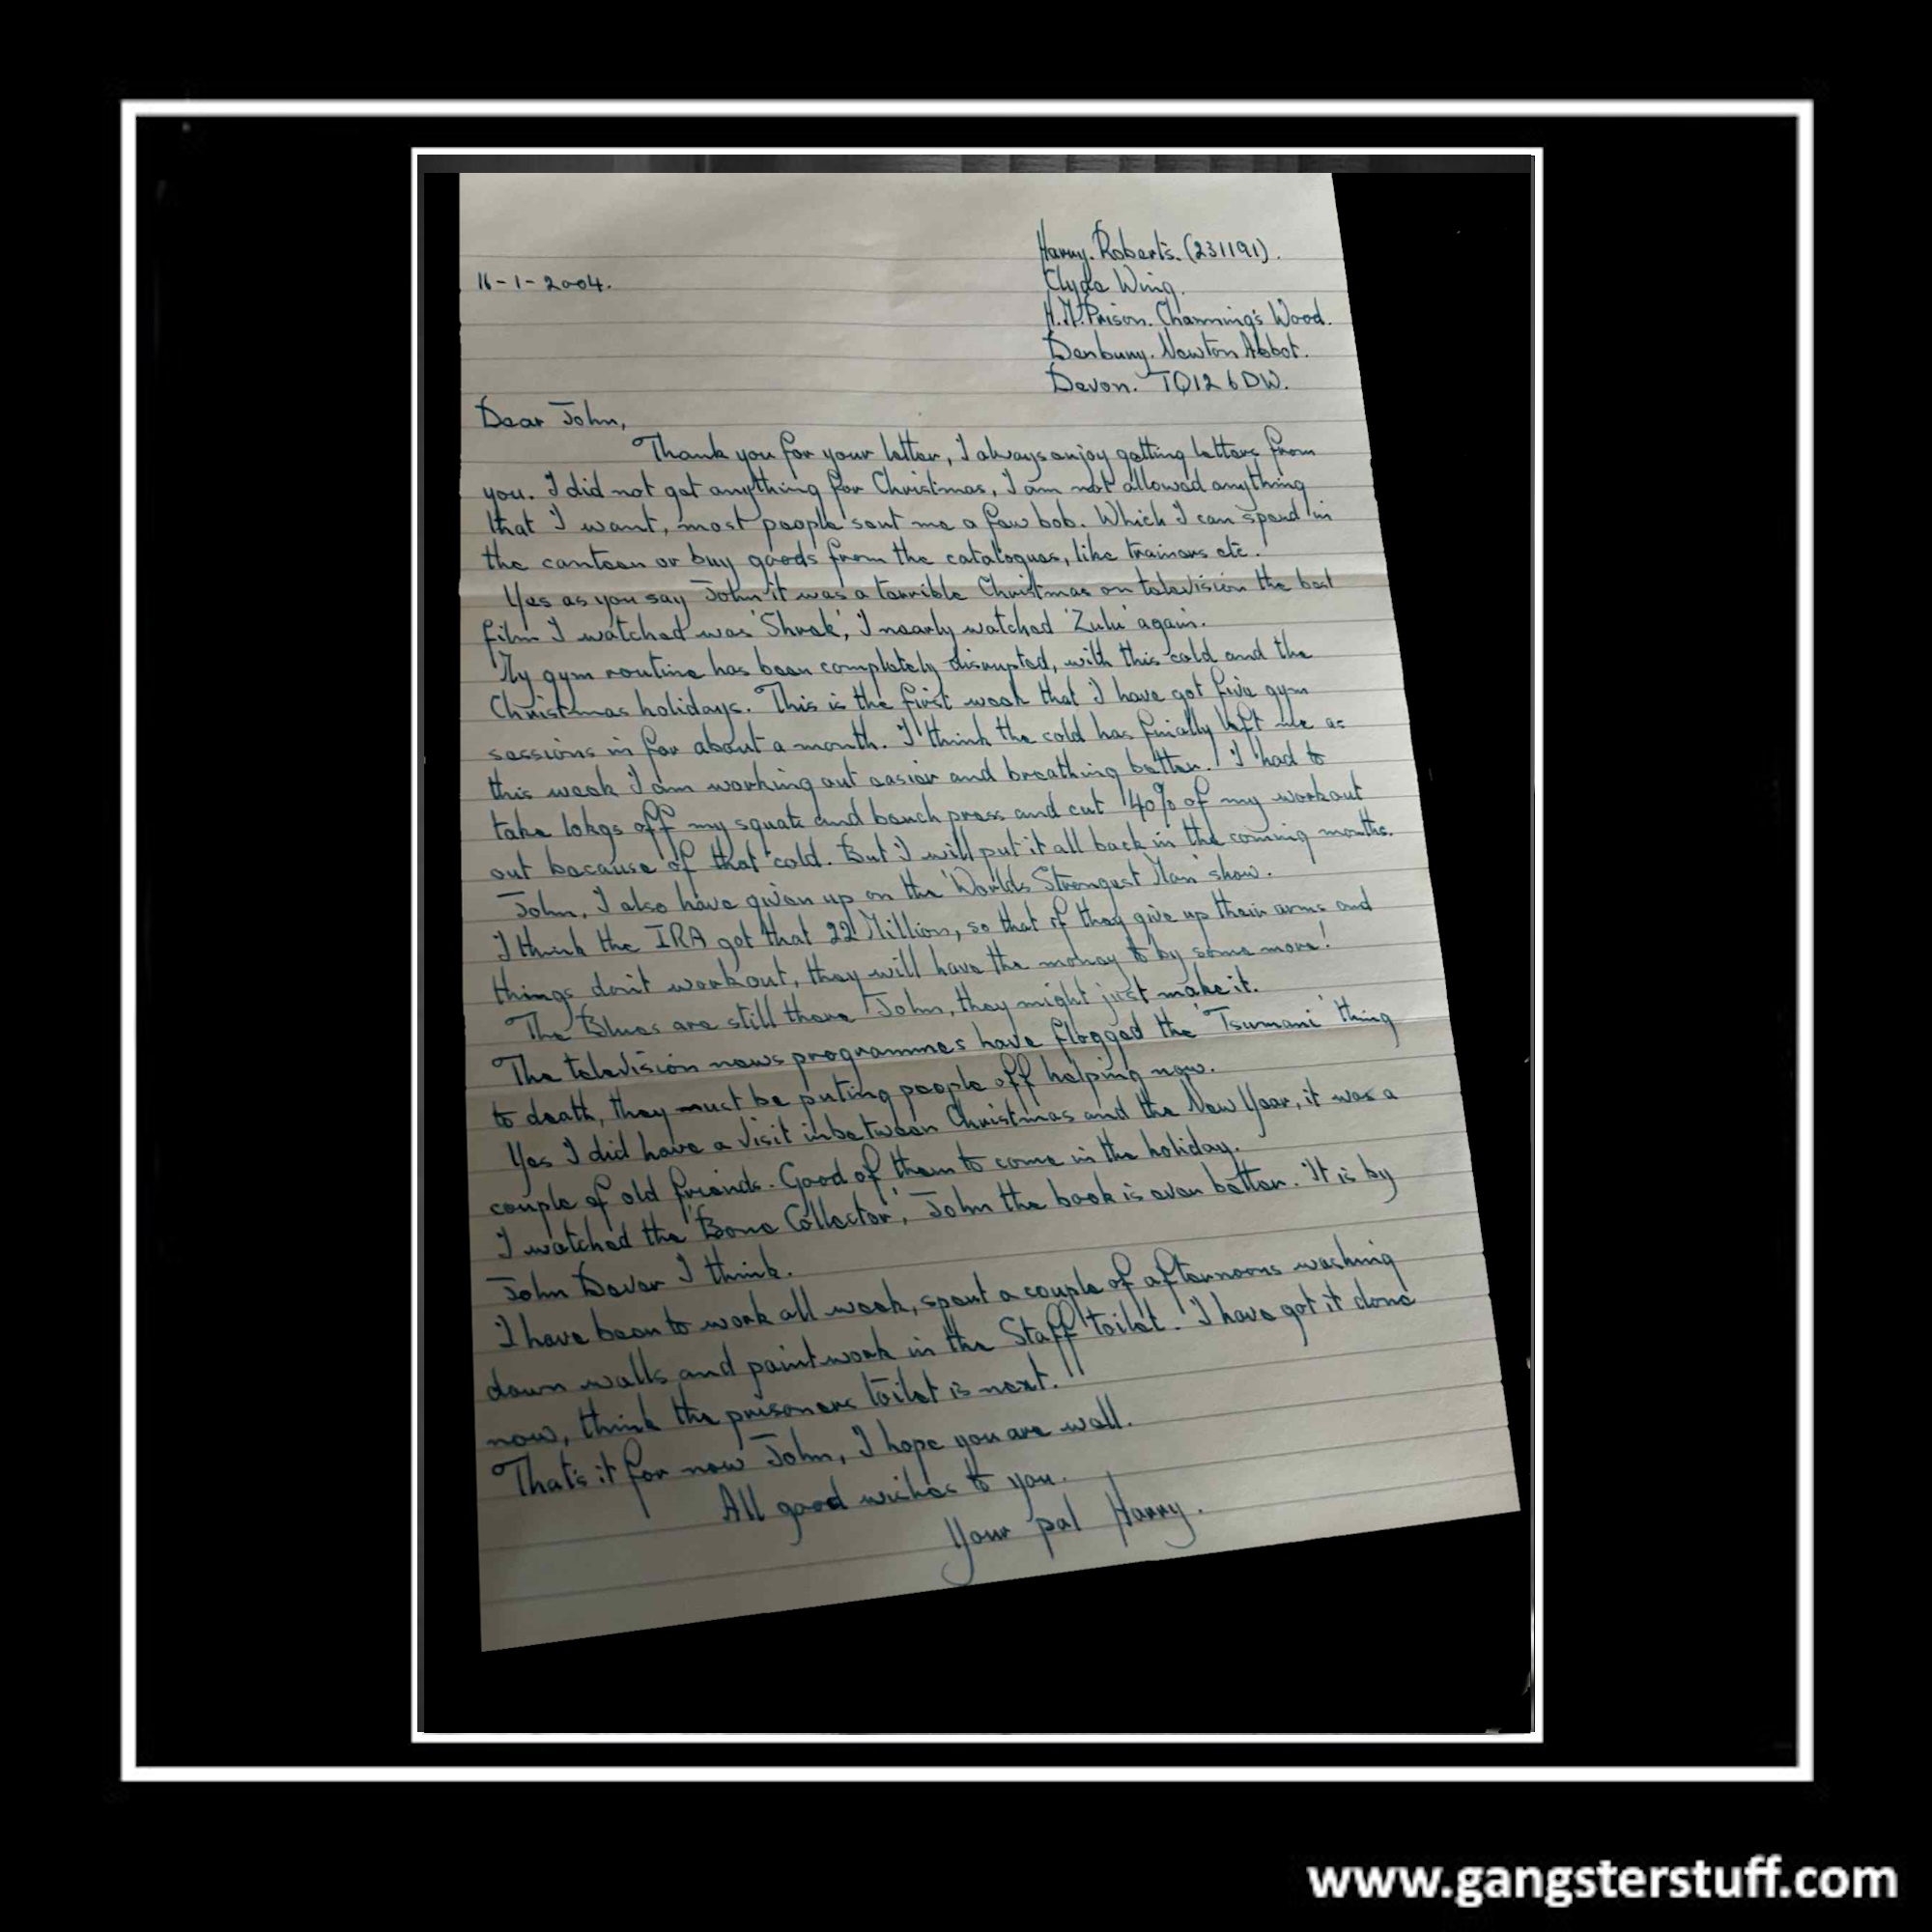 Harry. Roberts. (231191).
16-1-2004.
Clyde Wing.
H.M.Prison. Channing's Wood.
Denbury. Newton Abbot.
Devon. TQ12 6DW.
Dear John,
Thank you for your letter, I always enjoy getting letters from
you. I did not get anything for Christmas, I am not allowed anything
that I want, most people sent me a few bob. Which I can spend in
the canteen or buy goods from the catalogues, like trainers etc.
Yes as you say John it was a terrible Christmas on television the best
film I watched was 'Shrek', I nearly watched 'Zulu' again.
My gym routine has been completely disrupted, with this cold and the
Christmas holidays. This is the first week that I have got five gym
sessions in for about a month. I think the cold has finially left me as
this week I am working out easier and breathing better. I had to
take 10kgs off my squats and bench press and cut 40% of my workout
out because of that cold. But I will put it all back in the coming months.
John, I also have given up on the 'Worlds Strongest Man' show.
I think the IRA got that 22 Million, so that if they give up their arms and
things don't workout, they will have the money to by some more!
The Blues are still there John, they might just make it.
The television news programmes have flogged the 'Tsumani' thing
to death, they must be puting people off helping now.
Yes I did have a visit inbetween Christmas and the New Year, it was a
couple of old friends. Good of them to come in the holiday.
I watched the 'Bone Collector', John the book is even better. It is by
John Dever I think.
I have been to work all week, spent a couple of afternoons washing
down walls and paintwork in the Staff toilet. I have got it done
now, think the prisoners toilet is next.!!
That's it for now John, I hope you are well.
All good wishes to you.
Your pal Harry.
www.gangsterstuff.com